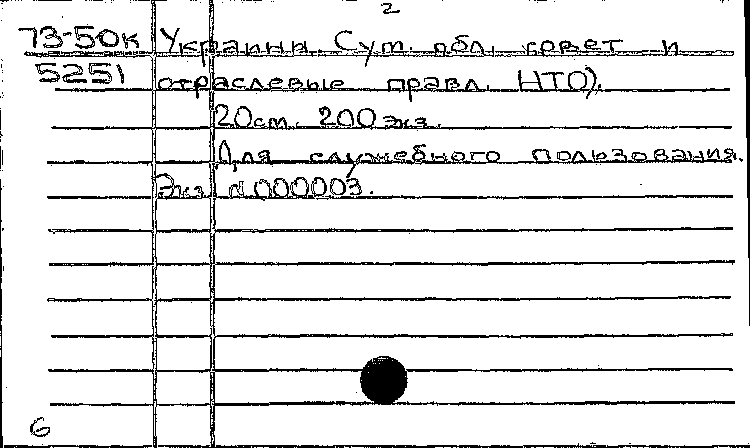 2
73-50к Украины. Сум. обл. совет и
5251 отраслевые правл. НТО).
20см. 200 экз.
Для служебного пользования.
Экз. N 000003.
6